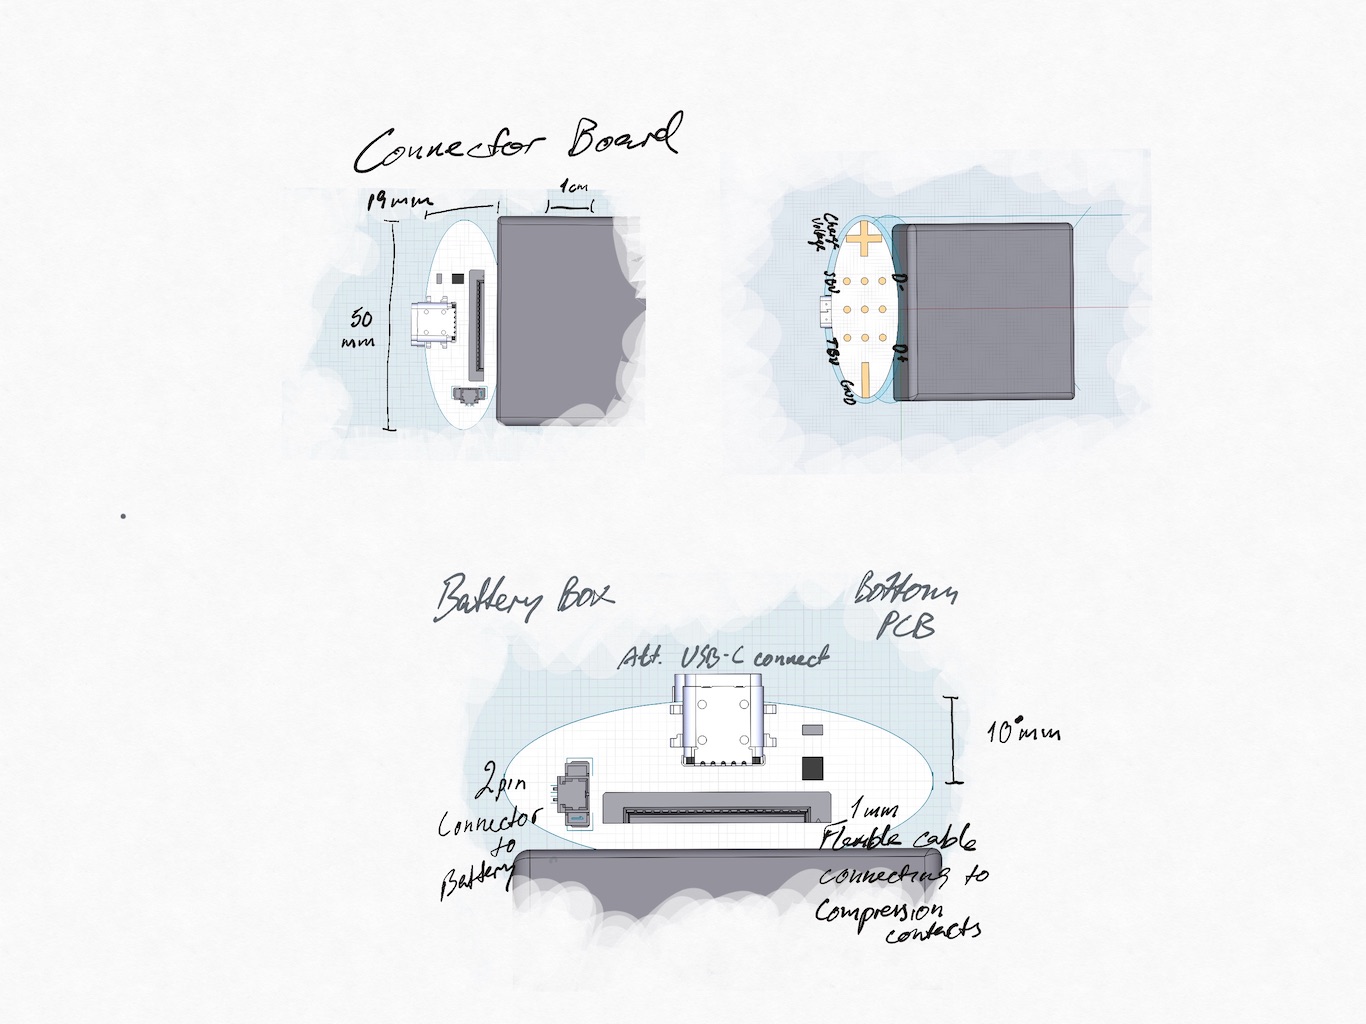 Connector Board
19mm
1cm
50
mm
Charge
Voltage
SBU
D-
TBU
D+
GND
Battery Box
Bottom
PCB
Alt. USB-C connect
10mm
2pin
Connector
to
Battery
1mm
Flexible cable
connecting to
Compression
contacts